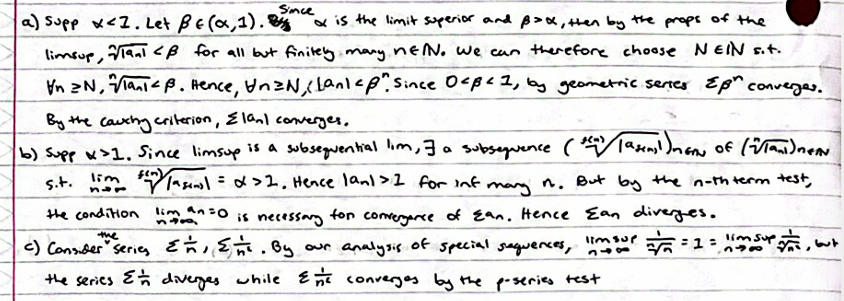 a) Supp α<1. Let β∈(α,1). Since α is the limit superior and β>α, then by the props of the
limsup, ⁿ√|aₙ| < β for all but finitely many n∈ℕ. We can therefore choose N∈ℕ s.t.
∀n≥N, ⁿ√|aₙ| < β. Hence, ∀n≥N, |aₙ| < βⁿ. Since 0<β<1, by geometric series Σβⁿ converges.
By the cauchy criterion, Σ|aₙ| converges.
b) Supp α>1. Since limsup is a subsequential lim, ∃ a subsequence (ˢ⁽ⁿ⁾√|a_s(n)|)n∈ℕ of (ⁿ√|aₙ|)n∈ℕ
s.t. lim n→∞ ˢ⁽ⁿ⁾√|a_s(n)| = α > 1. Hence |aₙ| > 1 for inf many n. But by the n-th term test,
the condition lim n→∞ aₙ = 0 is necessary for convergence of Σaₙ. Hence Σaₙ diverges.
c) Consider the series Σ 1/n, Σ 1/n². By our analysis of special sequences, limsup n→∞ 1/ⁿ√n = 1 = limsup n→∞ 1/ⁿ√n², but
the series Σ 1/n diverges while Σ 1/n² converges by the p-series test